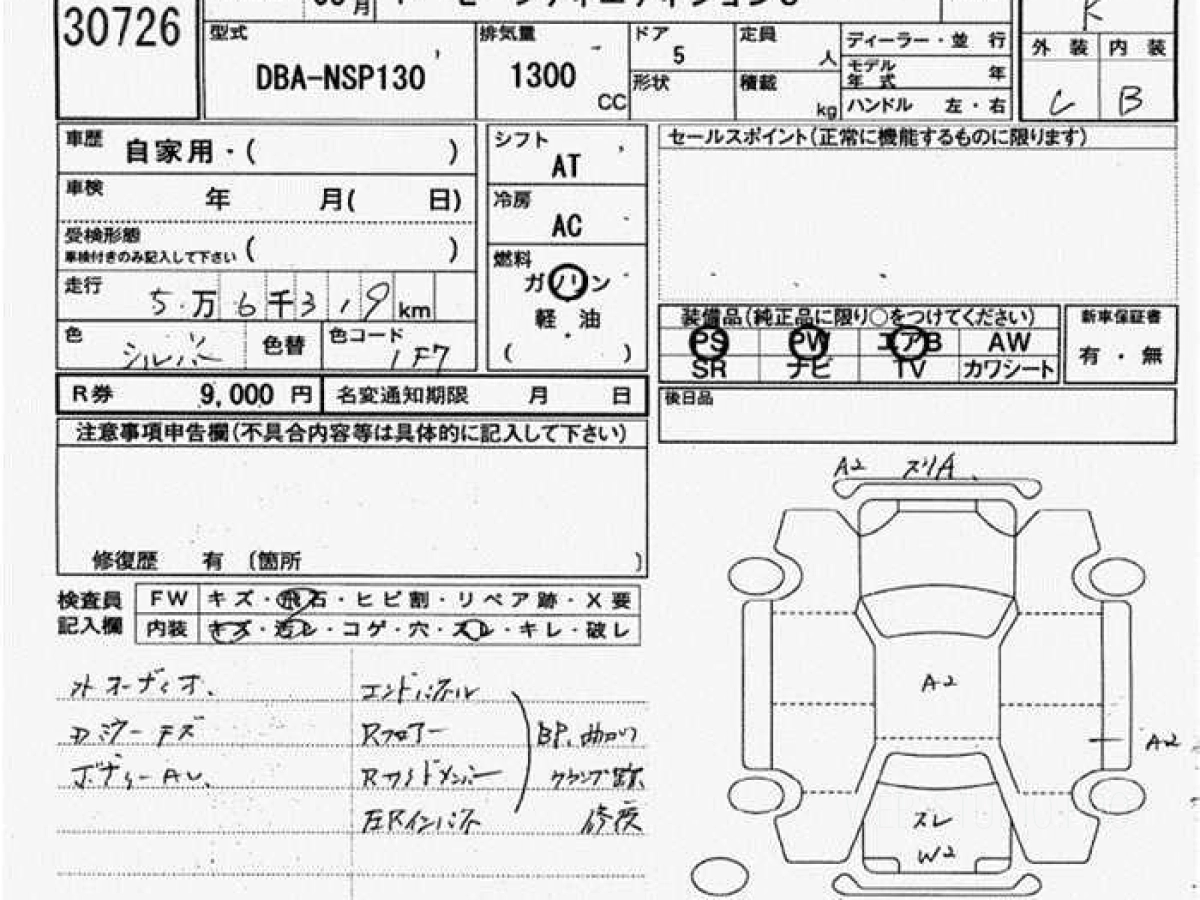 30726
月
型式
DBA-NSP130
排気量
1300
CC
ドア
5
形状
定員
人
積載
kg
ディーラー・並 行
モデル
年 式
年
ハンドル 左・右
R
外 装
内 装
C
B
車歴
自家用・( )
車検
年 月( 日)
受検形態
車検付きのみ記入して下さい ( )
走行
5万6千319km
色
シルバー
色替
色コード
1F7
シフト
AT
冷房
AC
燃料
ガソリン
軽・油
( )
セールスポイント(正常に機能するものに限ります)
装備品(純正品に限り○をつけてください)
PS PW エアB AW
SR ナビ TV カワシート
新車保証書
有・無
R券 9,000 円
名変通知期限 月 日
後日品
注意事項申告欄(不具合内容等は具体的に記入して下さい)
修復歴 有 〔箇所 〕
検査員
記入欄
FW キズ・飛石・ヒビ割・リペア跡・X要
内装 キズ・汚レ・コゲ・穴・スレ・キレ・破レ
外オーディオ、
ボディーAU、
エンドパネル
Rフロアー
Rサイドメンバー
BP、曲がり
修復
A2 スリA
A2
A2
ズレ
W2